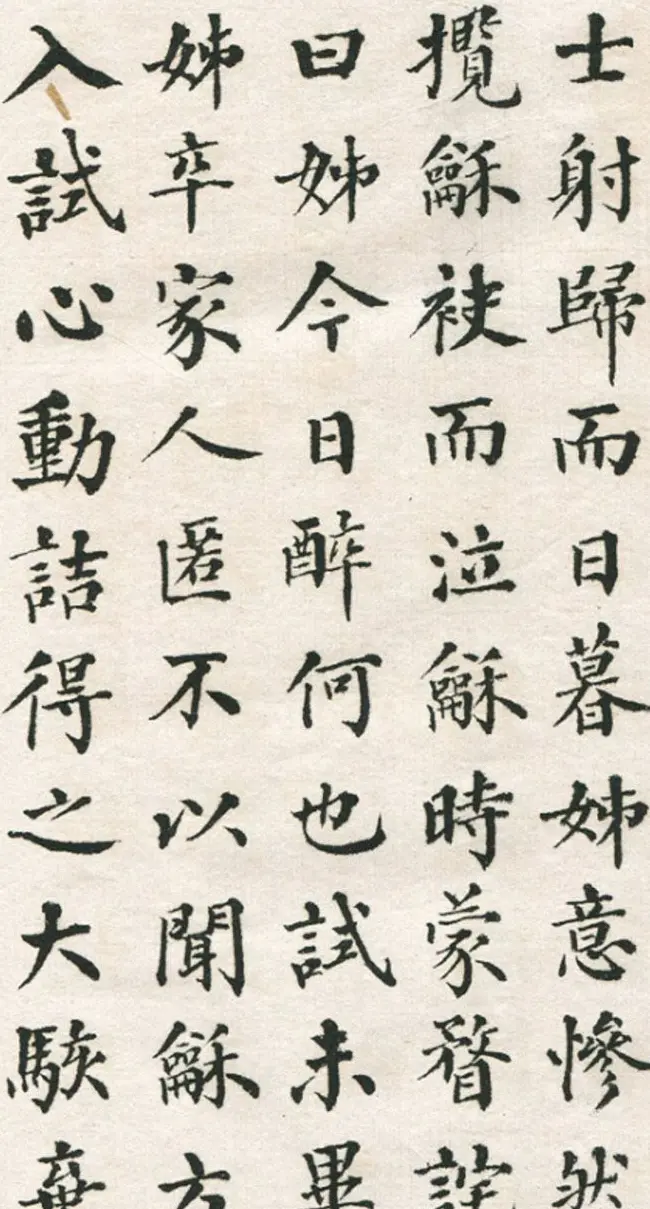 士射歸而日暮姊意慘然
攬龢袂而泣龢時蒙瞀詫
曰姊今日醉何也試未畢
姊卒家人匿不以聞龢方
入試心動詰得之大駭棄